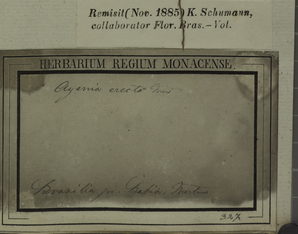 Remisit (Nov. 1885) K. Schumann,
collaborator Flor. Bras.—Vol.
HERBARIUM REGIUM MONACENSE.
Ayenia erecta
Brasilia pr. Bahia,
327